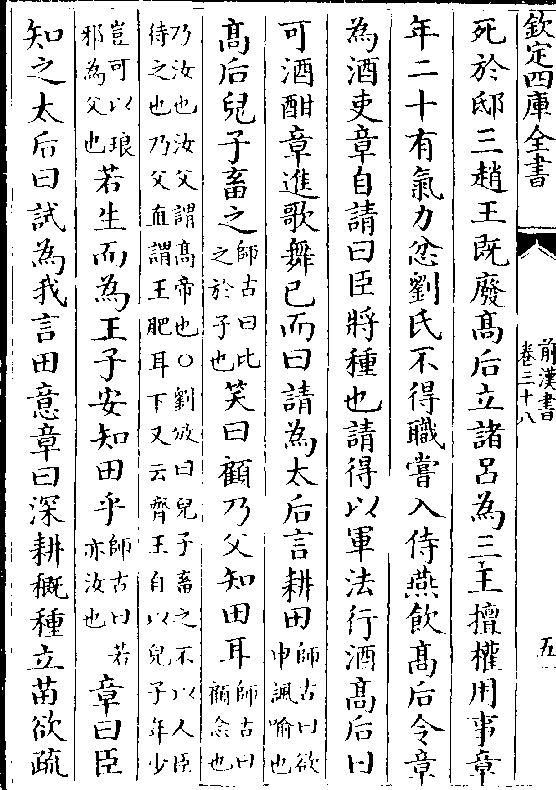 欽定四庫全書
前漢書
卷三十八
五
死於邸三趙王既廢髙后立諸呂為三王擅權用事章
年二十有氣力忿劉氏不得職嘗入侍燕飲髙后令章
為酒吏章自請曰臣將種也請得以軍法行酒髙后曰
可酒酣章進歌舞已而曰請為太后言耕田師古曰欲申諷喻也
髙后兒子畜之師古曰比之於子也笑曰顧乃父知田耳師古曰顧念也
乃汝也汝父謂髙帝也○劉攽曰兒子畜之不以人臣待之也乃父直謂王肥耳下又云齊王自以兒子年少
豈可以琅邪為父也若生而為王子安知田乎師古曰若亦汝也章曰臣
知之太后曰試為我言田意章曰深耕穊種立苗欲疏